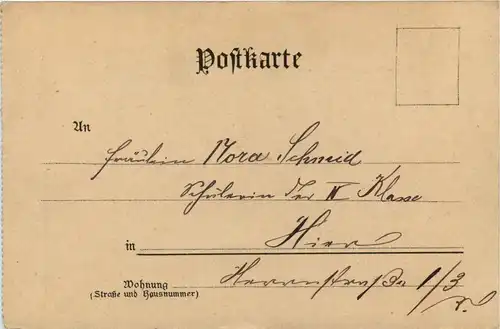 Postkarte
An
Fräulein Nora Schneid
Schülerin der IV Klasse
in Hier
Wohnung Herrnstraße 1/3
(Straße und Hausnummer) r.